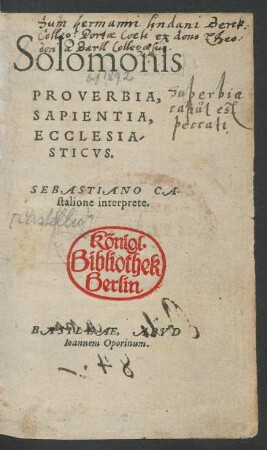 Sum hermanni lindani
Portae Coeli ex dono Theo
Solomonis
PROVERBIA,
SAPIENTIA,
ECCLESIA-
STICVS.
Superbia
caput est
peccati
SEBASTIANO CA-
stalione interprete.
Königl.
Bibliothek
Berlin
BASILEAE, APVD
Ioannem Oporinum.